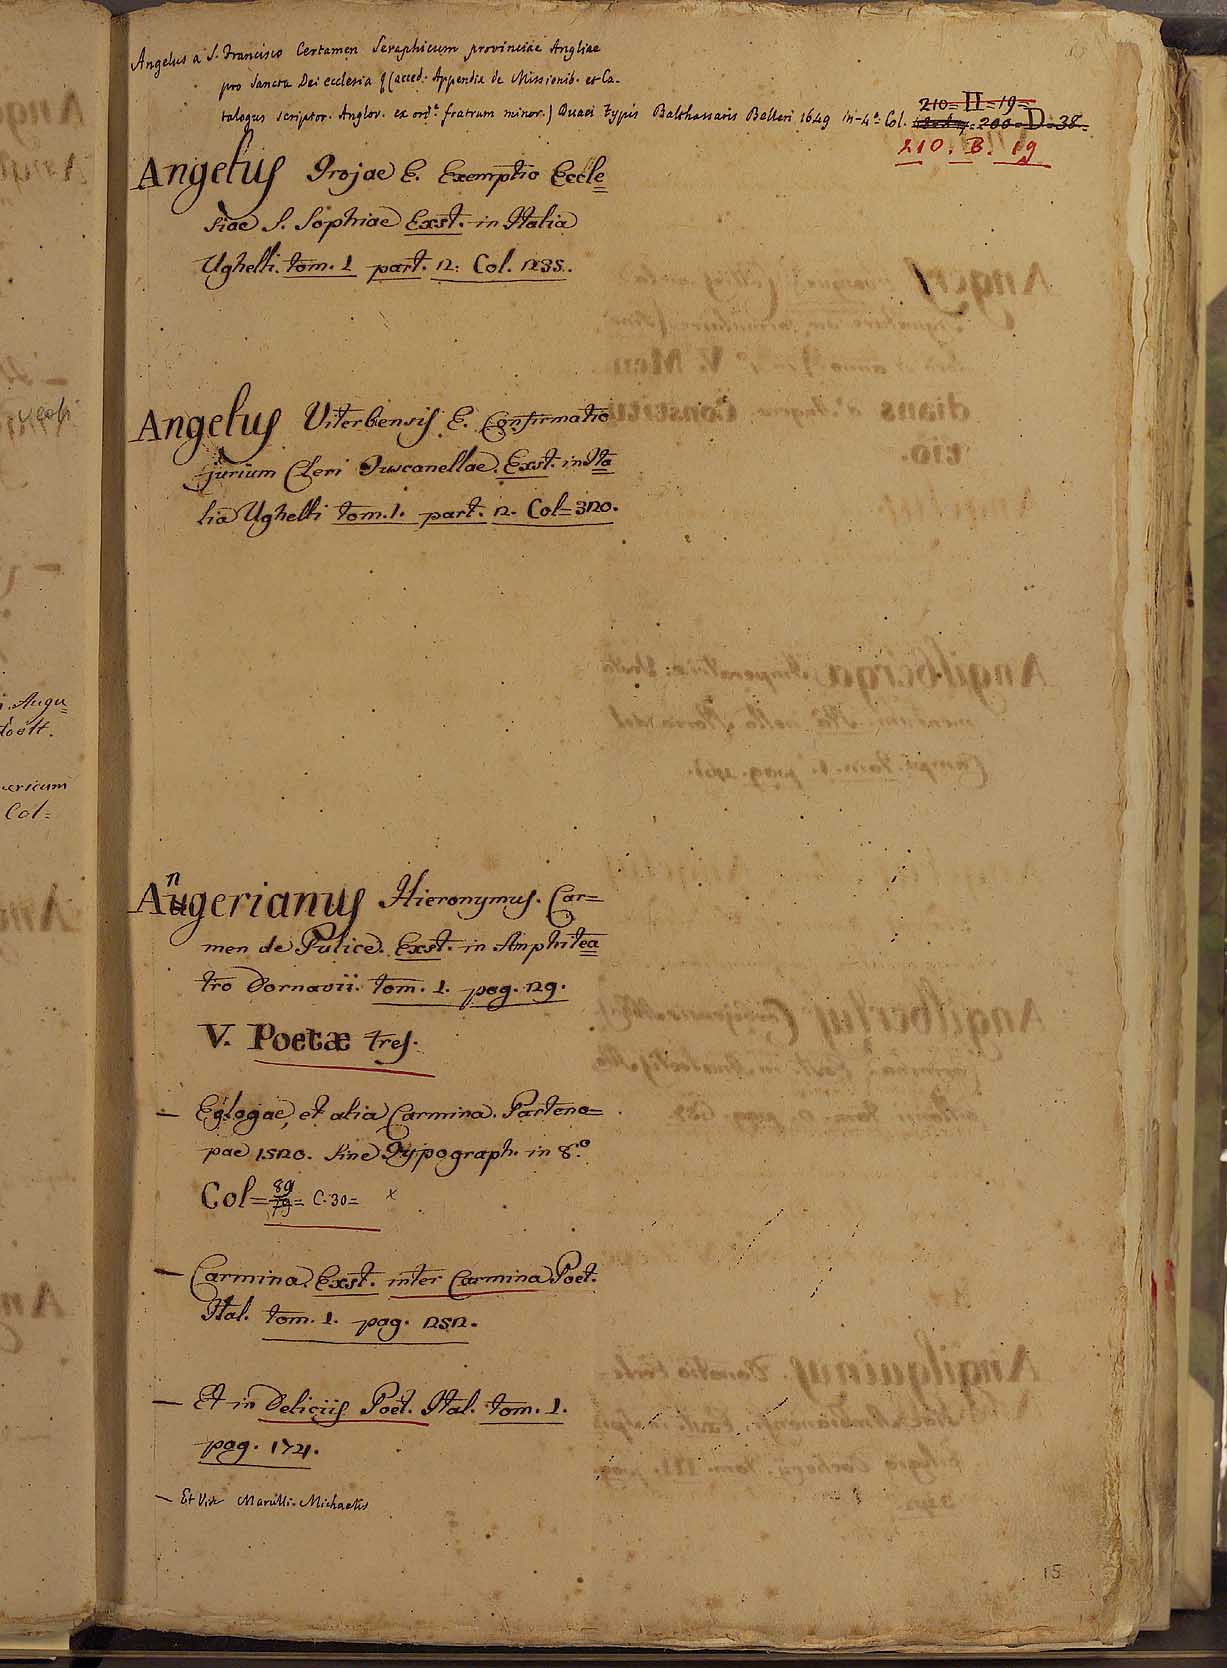 Angelus a S. Francisco Certamen Seraphicum provinciae Angliae
pro Sancta Dei ecclesia &c (acced. Appendix de Missionib. et Ca-
talogus scriptor. Anglor. ex ord.e fratrum minor.) Duaci typis Balthassaris Belleri 1649 in-4.o Col.
210=H=19=
200=D=38=
210. B. 19
Angelus Trojae E. Exemptio Eccle=
siae S. Sophiae Exst. in Italia
Ughelli. tom. 1 part. 2. Col. 235.
Angelus Viterbensis E. Confirmatio
jurium Cleri Tuscanellae. Exst. in Ita=
lia Ughelli tom. 1. part. 2. Col=320.
n
Augerianus Hieronymus. Car=
men de Pulice. Exst. in Amphitea=
tro Dornavii. tom. 1. pag. 29.
V. Poetæ tres.
— Eglogae, et alia Carmina. Parteno=
pae 1520. sine Typograph. in 8.o
Col= 89
79= C. 30= x
— Carmina. Exst. inter Carmina Poet.
Ital. tom. 1. pag. 252.
— Et in Deliciis Poet. Ital. tom. 1.
pag. 174.
— Et Vide Marulli. Michaelis
i. Augu=
ericum
Col=
15